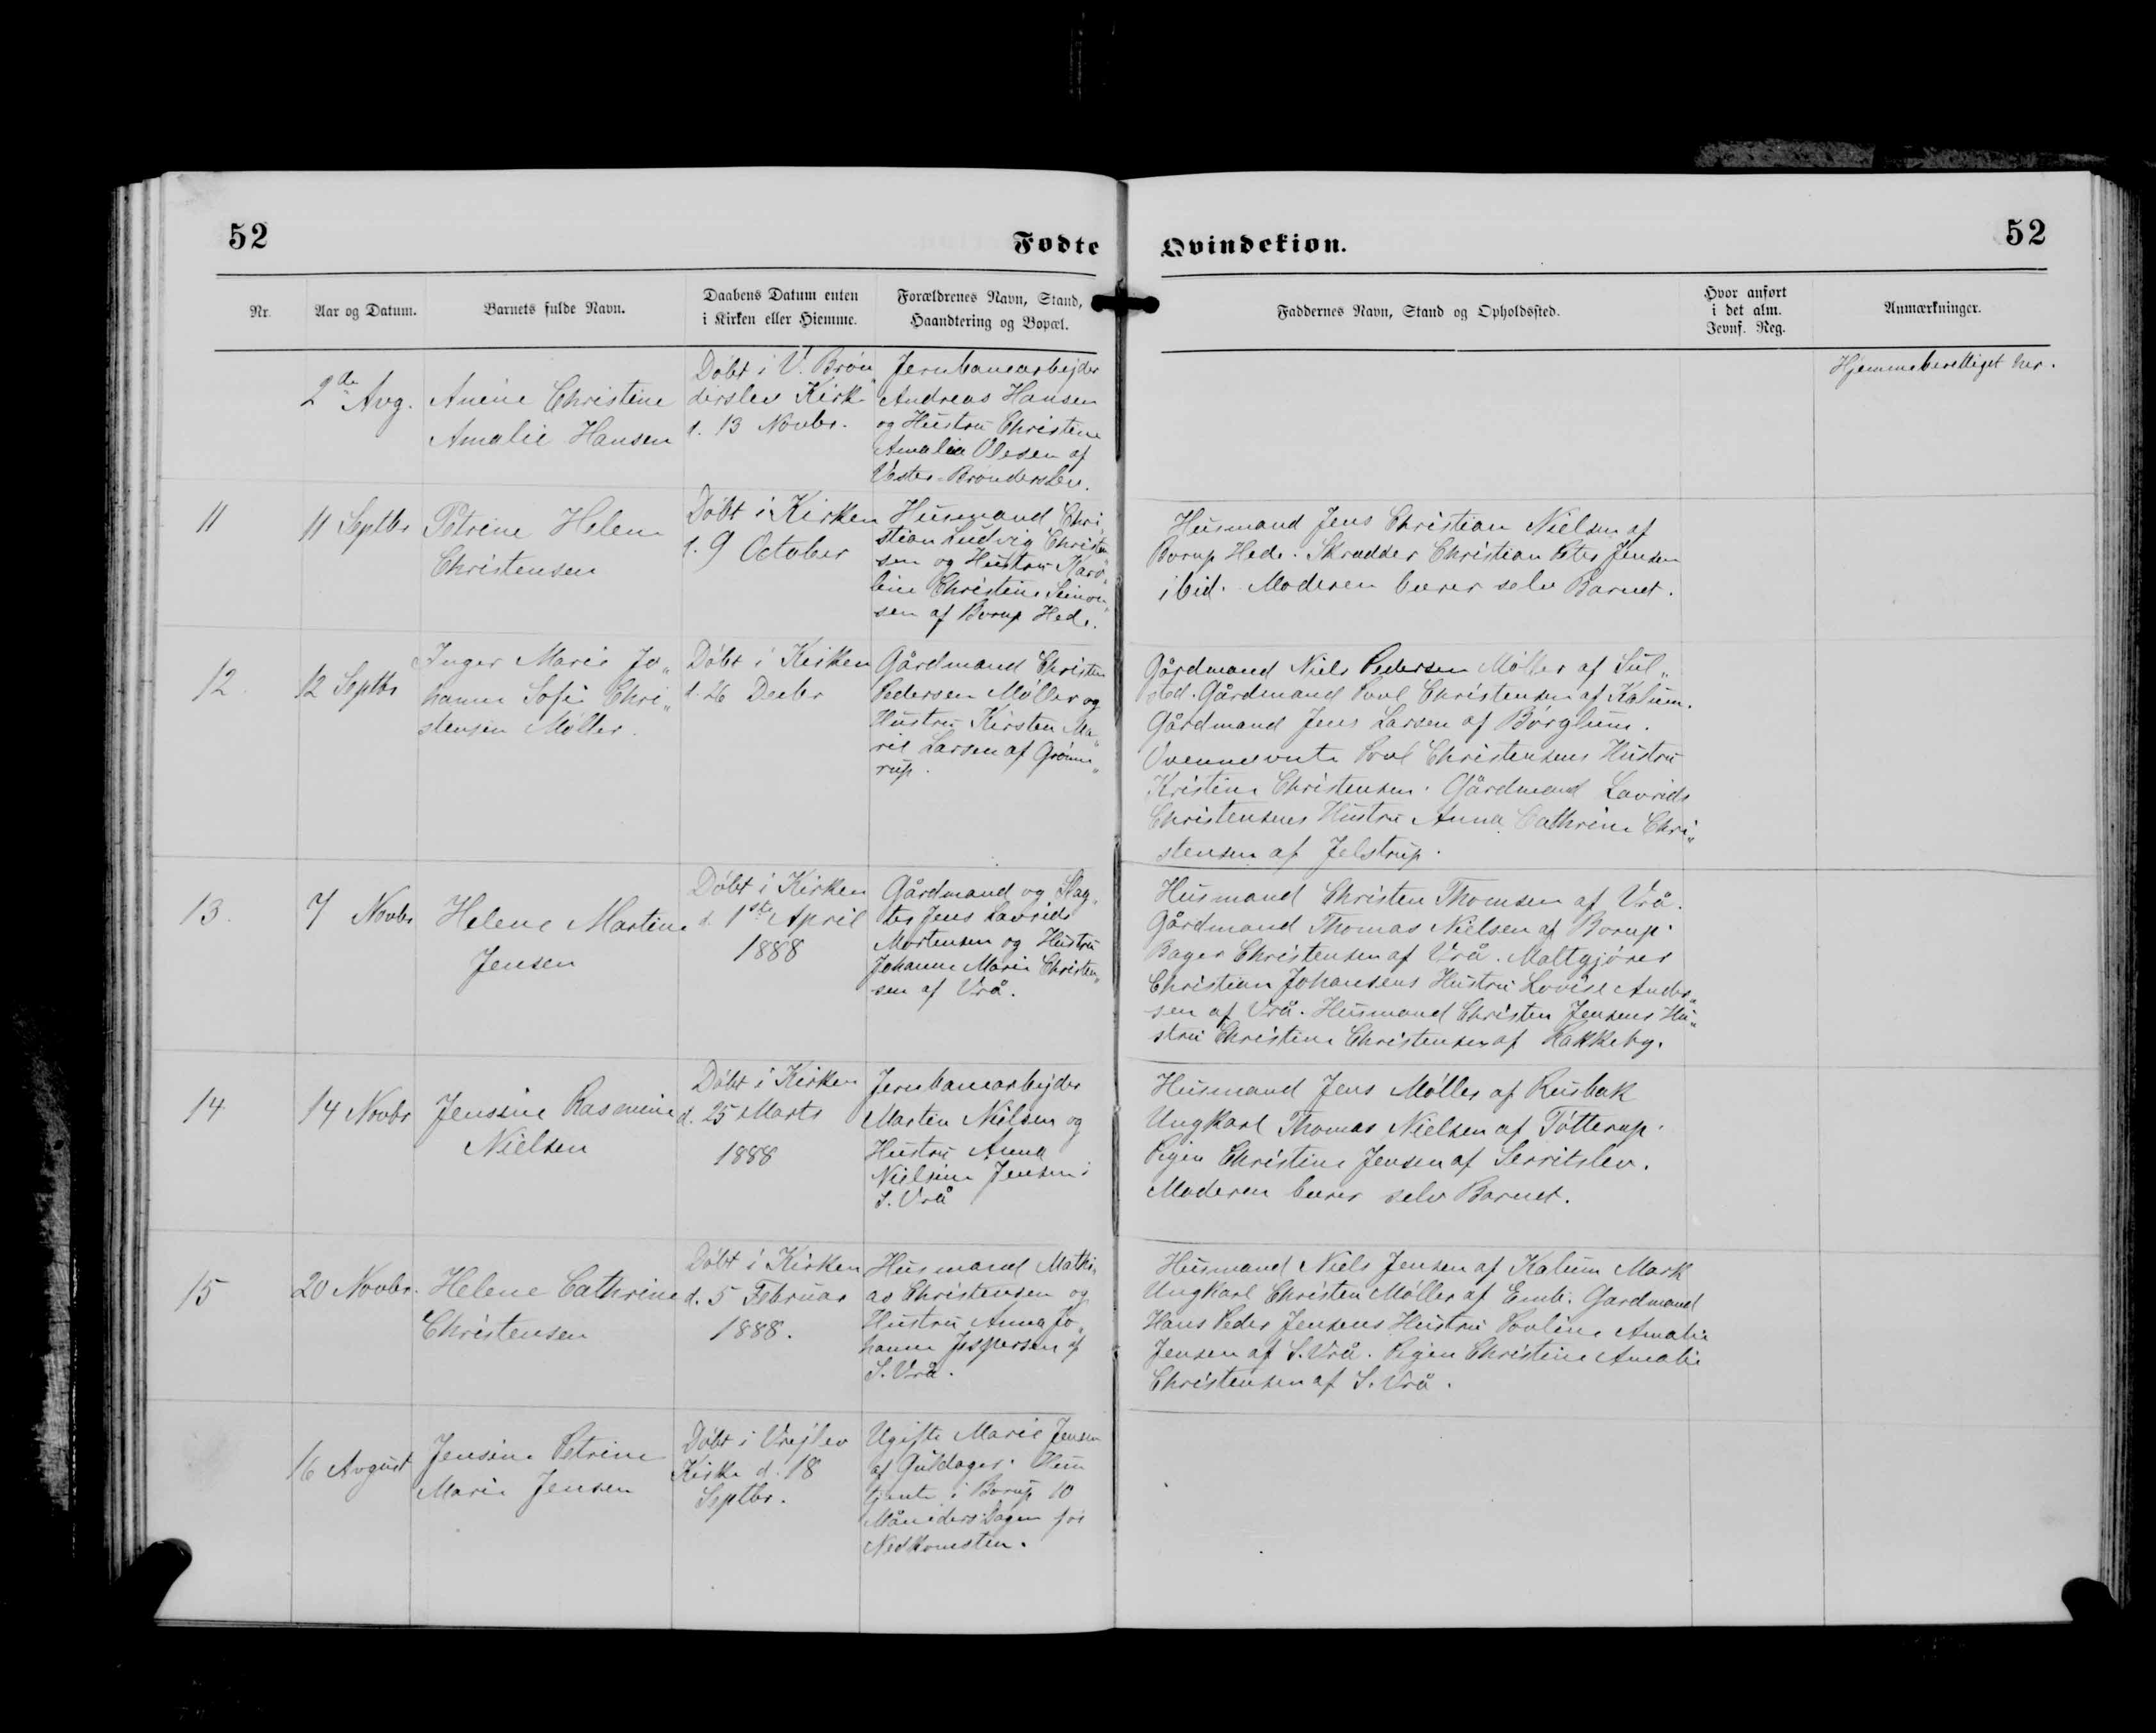 52
Fødte
Qvindekiøn.
52
Nr.
Aar og Datum.
Barnets fulde Navn.
Daabens Datum enten
i Kirken eller Hiemme.
Forældrenes Navn, Stand,
Haandtering og Bopæl.
Faddernes Navn, Stand og Opholdssted.
Hvor anført
i det alm.
Jevnf. Reg.
Anmærkninger.
2de Avg.
Anine Christine
Amalie Hansen
Døbt i V. Brøn„
derslev Kirke
d. 13 Novbr.
Jernbanearbejder
Andreas Hansen
og Hustru Christine
Amalia Olesen af
Vester-Brønderslev.
Hjemmeberettiget her.
11
11 Septbr
Petrine Helene
Christensen
Døbt i Kirken
d. 9 October
Husmand Chri„
stian Ludvig Christen„
sen og Hustru Karo„
line Christine Simon„
sen af Borup Hede.
Husmand Jens Christian Nielsen af
Borup Hede. Skrædder Christian Peter Jensen
ibid. Moderen bærer selv Barnet.
12.
12 Septbr
Inger Marie Jo„
hanne Sofie Chri„
stensen Møller.
Døbt i Kirken
d. 26 Decbr
Gårdmand Christen
Pedersen Møller og
Hustru Kirsten Ma„
rie Larsen af Grønne„
rup.
Gårdmand Niels Pedersen Møller af Sul„
sted. Gårdmand Povl Christensen af Kalum.
Gårdmand Jens Larsen af Børglum.
Ovennævnte Povl Christensens Hustru
Kristine Christensen. Gårdmand Lavrids
Christensens Hustru Anna Cathrine Chri„
stensen af Jelstrup.
13.
7 Novbr
Helene Martine
Jensen
Døbt i Kirken
d. 1ste April
1888
Gårdmand og Slag„
ter Jens Lavrids
Mortensen og Hustru
Johanne Marie Christen„
sen af Vrå.
Husmand Christen Thomsen af Vrå.
Gårdmand Thomas Nielsen af Borup.
Bager Christensen af Vrå. Maltgjører
Christian Johansens Hustru Lovise Ander„
sen af Vrå. Husmand Christen Jensens Hu„
stru Christine Christensen af Rakkeby.
14
14 Novbr
Jensine Rasmine
Nielsen
Døbt i Kirken
d. 25 Marts
1888
Jernbanearbejder
Marten Nielsen og
Hustru Anna
Nielsine Jensen i
S. Vrå
Husmand Jens Møller af Rusbak
Ungkarl Thomas Nielsen af Tøtterup.
Pigen Christine Jensen af Serritslev.
Moderen bærer selv Barnet.
15
20 Novbr.
Helene Cathrine
Christensen
Døbt i Kirken
d. 5 Februar
1888.
Husmand Mathi„
as Christensen og
Hustru Anna Jo„
hanne Jespersen af
S. Vrå.
Husmand Niels Jensen af Kalum Mark
Ungkarl Christen Møller af Emb. Gardmand
Hans Peder Jensens Hustru Povline Amalie
Jensen af S. Vrå. Pigen Christine Amalie
Christensen af S. Vrå.
16 Avgust
Jensine Petrine
Marie Jensen
Døbt i Vrejlev
Kirke d. 18
Septbr.
Ugifte Marie Jensen
af Guldager. Hun
tjente i Borup 10
Måneders Dagen før
Nedkomsten.